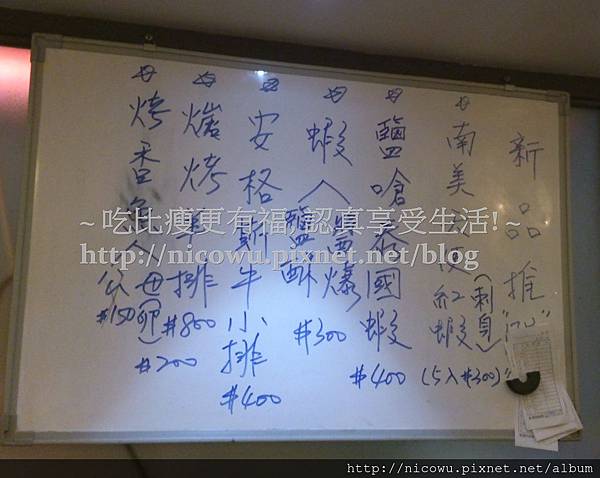 新品推
☆南美
紅蝦(刺身)
(5入#300)
☆鹽嗆泰國蝦
#400
☆蝦
鹽酥
爆
#300
☆安格斯牛小排
#400
☆烤
排
#800
☆烤香魚
公
#150
母(卵)
#200
~吃比瘦更有福,認真享受生活!~
http://nicowu.pixnet.net/blog
http://nicowu.pixnet.net/album